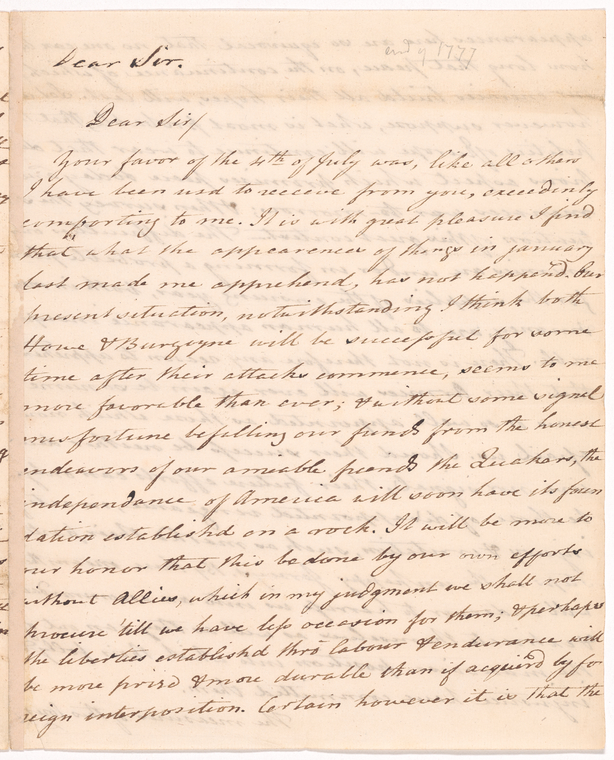 end of 1777
Dear Sir.
Dear Sir/
Your favor of the 4th of July was, like all others
I have been usd to receive from you, exceedinly
comforting to me. It is with great pleasure I find
that what the appearence of things in january
last made me apprehend, has not happend. Our
present situation, notwithstanding I think both
Howe & Burgoyne will be successful for some
time after their attacks commence, seems to me
more favorable than ever; & without some signal
misfortune befalling our funds from the honest
endeavors of our amiable friends the Quakars, the
independance of America will soon have its foun
dation establishd on a rock. It will be more to
our honor that this be done by our own efforts
without Allies, which in my judgment we shall not
procure 'till we have less occasion for them; & perhaps
the liberties establishd thro labour & endurance will
be more prizd & more durable than if acquird by fo
reign interposition. Certain however it is that the